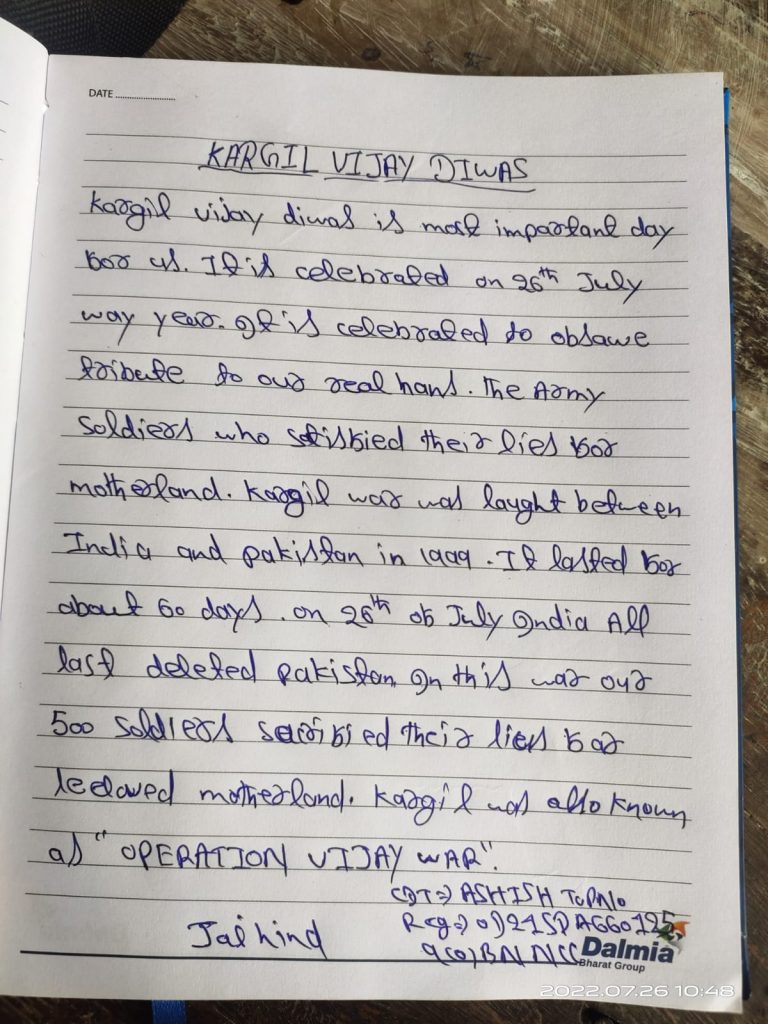 DATE
KARGIL VIJAY DIWAS
Kargil vijay diwas is most important day
for us. It is celebrated on 26th July
way year. It is celebrated to obsawe
tribute to our real hans. The Army
soldiers who satisfied their lies for
motherland. Kargil war was laught between
India and pakistan in 1999. It lasted for
about 60 days. on 26th of July India All
last deleted pakistan. In this war our
500 soldiers sacrified their lies for
ledaved motherland. Kargil was also known
as "OPERATION VIJAY WAR".
CDT=> ASHISH TOPNO
Reg=>
BN NCC
Jai hind
Dalmia
Bharat Group
2022.07.26 10:48